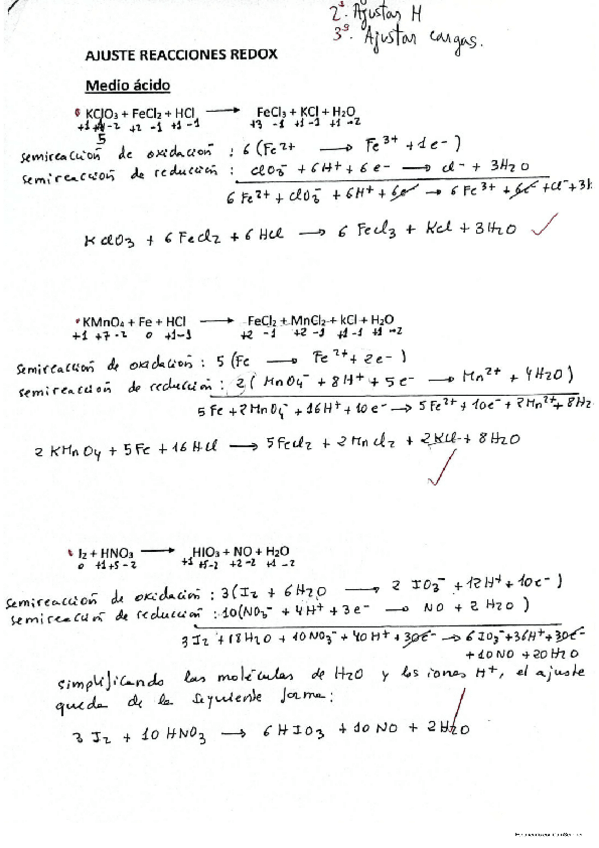 2º. Ajustar H
3º. Ajustar cargas.
AJUSTE REACCIONES REDOX
Medio ácido
KClO₃ + FeCl₂ + HCl ⟶ FeCl₃ + KCl + H₂O
+1 -2 +2 -1 +1 -1 +3 -1 +1 -1 +1 -2
5
semireacción de oxidación : 6 (Fe²⁺ ⟶ Fe³⁺ + 1e⁻)
semireacción de reducción : ClO₃⁻ + 6H⁺ + 6e⁻ ⟶ Cl⁻ + 3H₂O
6 Fe²⁺ + ClO₃⁻ + 6H⁺ + 6e⁻ → 6 Fe³⁺ + 6e⁻ + Cl⁻ + 3H
KClO₃ + 6 FeCl₂ + 6 HCl ⟶ 6 FeCl₃ + KCl + 3H₂O
KMnO₄ + Fe + HCl ⟶ FeCl₂ + MnCl₂ + kCl + H₂O
+1 +7 -2 0 +1 -1 +2 -1 +2 -1 +1 -1 +1 -2
semireacción de oxidación : 5 (Fe ⟶ Fe²⁺ + 2e⁻)
semireacción de reducción : 2 (MnO₄⁻ + 8H⁺ + 5e⁻ ⟶ Mn²⁺ + 4H₂O)
5 Fe + 2 MnO₄⁻ + 16H⁺ + 10e⁻ → 5 Fe²⁺ + 10e⁻ + 2 Mn²⁺ + 8H₂
2 KMnO₄ + 5 Fe + 16 HCl ⟶ 5 FeCl₂ + 2 MnCl₂ + 2 KCl + 8 H₂O
I₂ + HNO₃ ⟶ HIO₃ + NO + H₂O
0 +1 +5 -2 +1 +5 -2 +2 -2 +1 -2
semireacción de oxidación : 3 (I₂ + 6 H₂O ⟶ 2 IO₃⁻ + 12H⁺ + 10e⁻)
semireacción de reducción : 10 (NO₃⁻ + 4H⁺ + 3e⁻ ⟶ NO + 2 H₂O)
3 I₂ + 18 H₂O + 10 NO₃⁻ + 40 H⁺ + 30e⁻ → 6 IO₃⁻ + 36H⁺ + 30e⁻
+ 10 NO + 20 H₂O
simplificando las moléculas de H₂O y los iones H⁺, el ajuste
queda de la siguiente forma:
3 I₂ + 10 HNO₃ ⟶ 6 HIO₃ + 10 NO + 2 H₂O